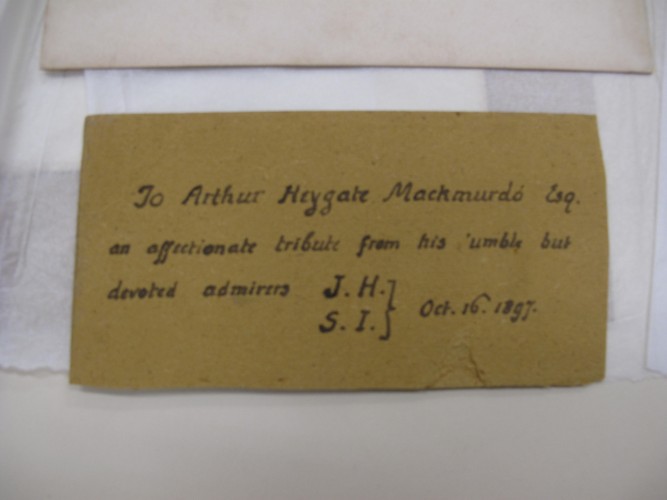 To Arthur Heygate Mackmurdo Esq.
an affectionate tribute from his 'umble but
devoted admirers J. H. }
S. I. } Oct. 16. 1897.